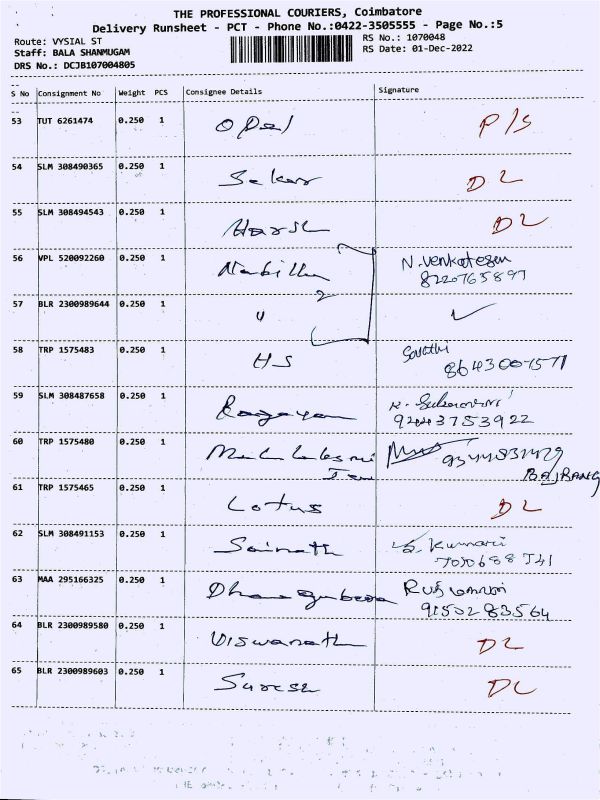 THE PROFESSIONAL COURIERS, Coimbatore
Delivery Runsheet - PCT - Phone No.:0422-3505555 - Page No.:5
Route: VYSIAL ST RS No.: 1070048
Staff: BALA SHANMUGAM RS Date: 01-Dec-2022
DRS No.: DCJB107004805
S No Consignment No Weight PCS Consignee Details Signature
53 TUT 6261474 0.250 1 Opel P/S
54 SLM 308490365 0.250 1 Seker DL
55 SLM 308494543 0.250 1 Harsh DL
56 VPL 520092260 0.250 1 N.Venkatesan
8220765897
57 BLR 2300989644 0.250 1 " 2 ✓
58 TRP 1575483 0.250 1 HS
8643007571
59 SLM 308487658 0.250 1
92443753922
60 TRP 1575480 0.250 1
BAJRANG
61 TRP 1575465 0.250 1 Lotus DL
62 SLM 308491153 0.250 1 Sainath Kumari
63 MAA 295166325 0.250 1
9150283564
64 BLR 2300989580 0.250 1 Viswanath DL
65 BLR 2300989603 0.250 1 Suresh DL